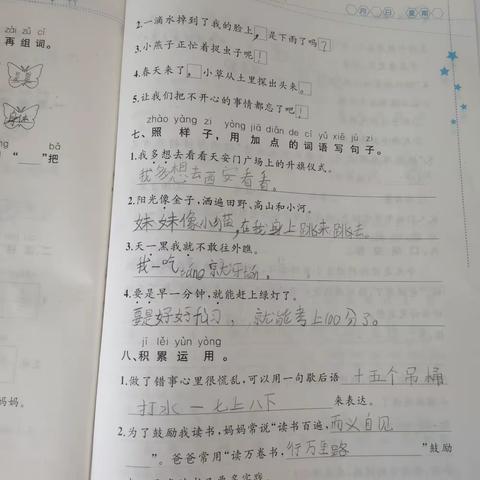 月 日 星期
zài zǔ cí
再组词。
bǎ
“ ”把
妈妈。
2.一滴水掉到了我的脸上,是下雨了吗?
3.小燕子正忙着捉虫子呢!
4.春天来了,小草从土里探出头来。
5.让我们把不开心的事情都忘了吧!
zhào yàng zi yòng jiā diǎn de cí yǔ xiě jù zi
七、照样子,用加点的词语写句子。
1.我多想去看看天安门广场上的升旗仪式。
我多想去西安看看。
2.阳光像金子,洒遍田野、高山和小河。
妹妹像小猫,在我身上跳来跳去。
3.天一黑我就不敢往外瞧。
我一吃táng就牙
4.要是早一分钟,就能赶上绿灯了。
要是好好学习,就能考上100分了。
jī lěi yùn yòng
八、积累运用。
1.做了错事心里很慌乱,可以用一句歇后语 十五个吊桶
打水一七上八下 来表达。
2.为了鼓励我读书,妈妈常说“读书百遍,而义自见
”。爸爸常用“读万卷书,行万里路 ”鼓励